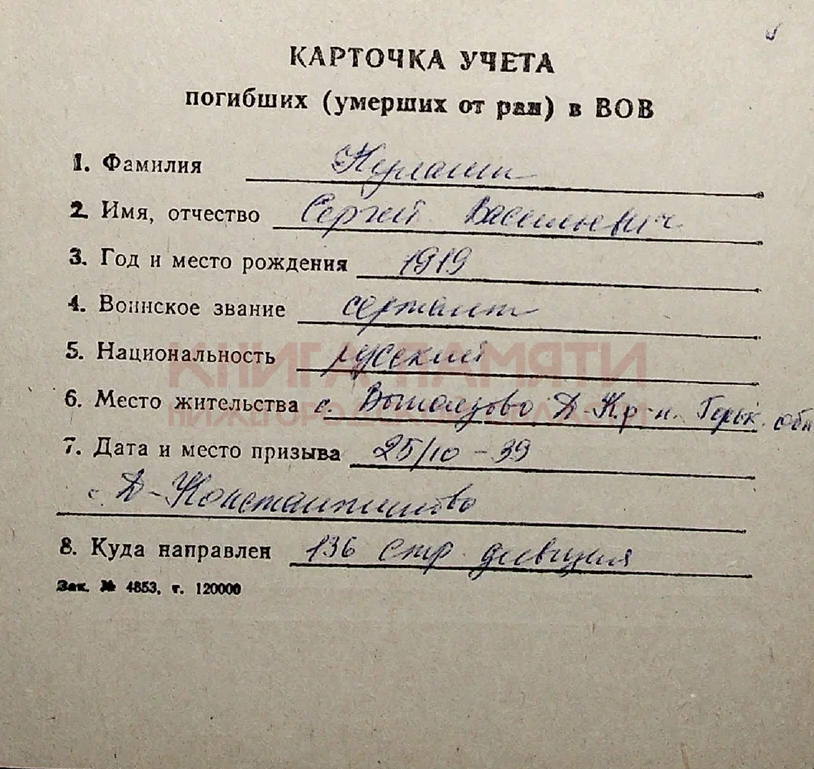 КАРТОЧКА УЧЕТА
погибших (умерших от ран) в ВОВ
1. Фамилия
2. Имя, отчество Сергей Васильевич
3. Год и место рождения 1919
4. Воинское звание сержант
5. Национальность русский
КНИГА ПАМЯТИ
НИЖЕГОРОДСКОЙ ОБЛАСТИ
6. Место жительства с. Д-К р-н. Горьк. обл
7. Дата и место призыва 25/10-39
с. Д-Константиново
8. Куда направлен 136 стр. дивизия
Зак. № 4853, т. 120000